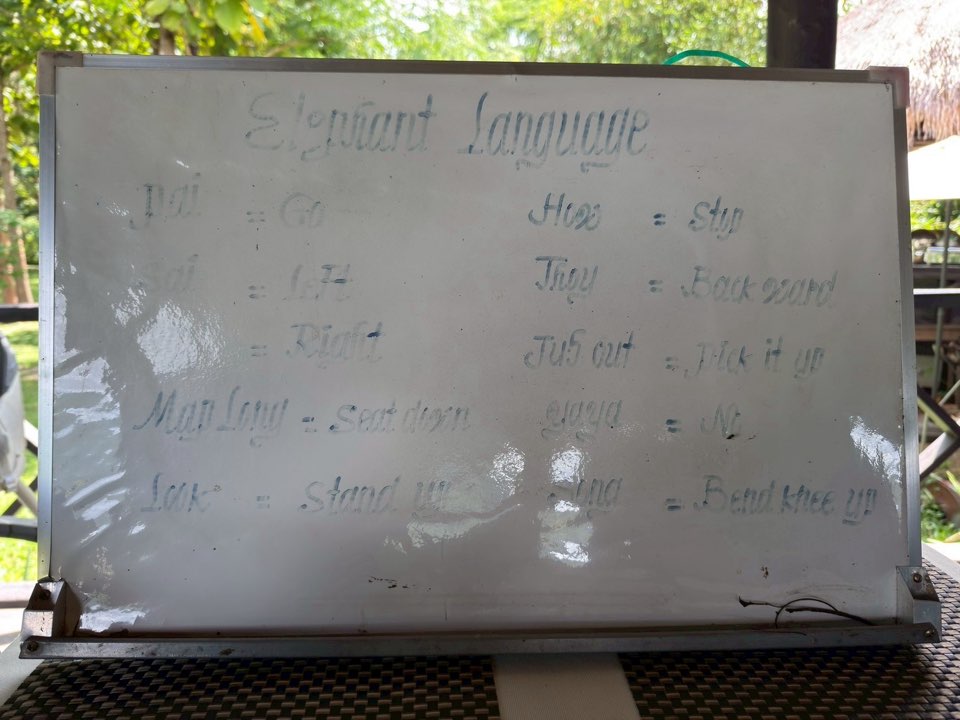 Elephant Language
Pai = Go
Sai = Left
= Right
Map Long = Seat down
Look = Stand up
How = Stop
Thoy = Back ward
Jub out = Pick it up
yaya = No
Song = Bend knee up